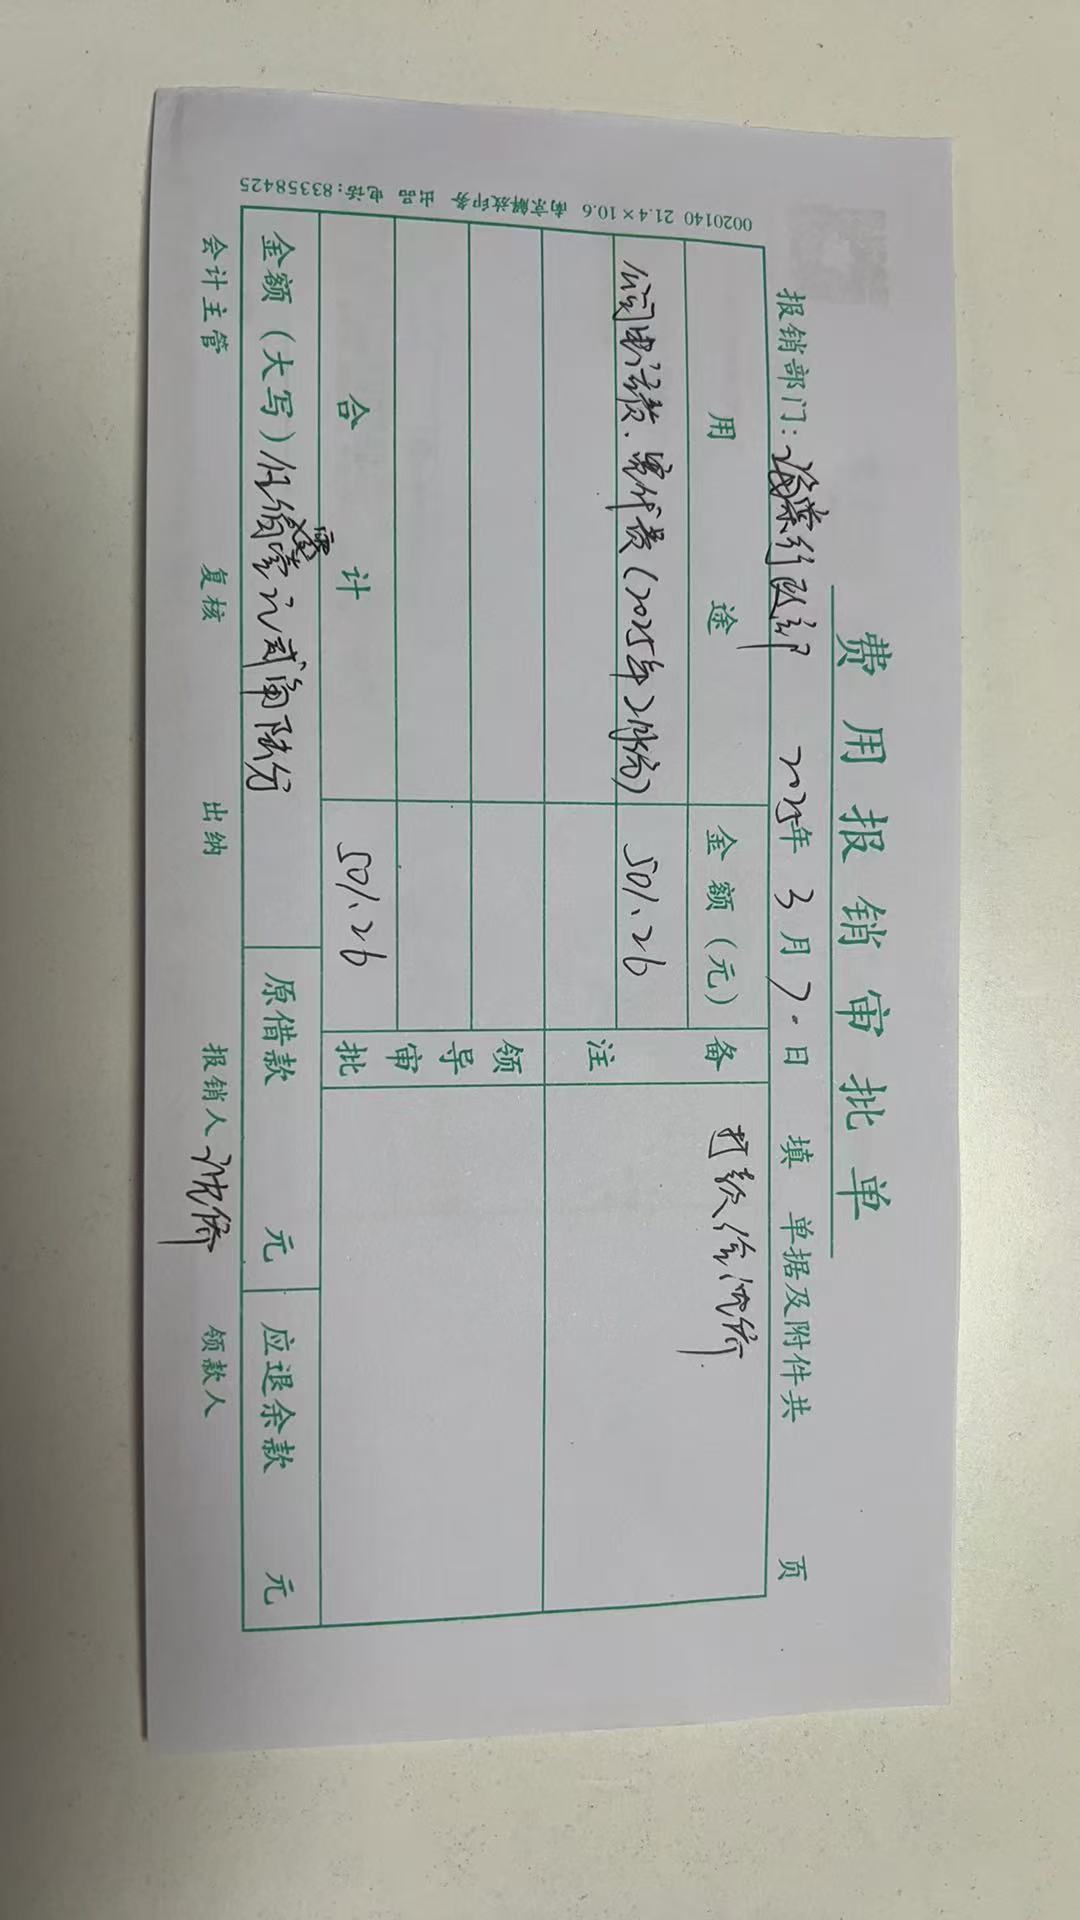 费用报销审批单
报销部门：海棠行政部 2025年3月7日 填 单据及附件共 页
用途 金额（元） 备注
公司电话费、宽带费（2025年2月份） 501.26 打款给沈侨
合计 501.26 领导审批
金额（大写）伍佰零壹元贰角陆分 原借款 元 应退余款 元
会计主管 复核 出纳 报销人 沈侨 领款人
0020140 21.4×10.6 南京解放印务 出品 电话:83358425